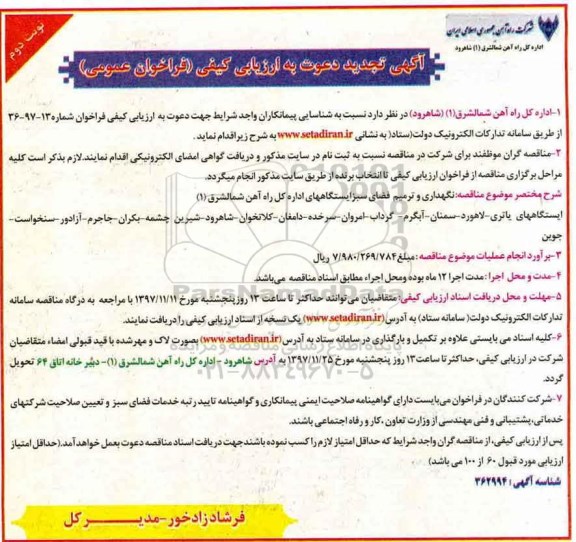 نوبت دوم
شرکت راه آهن جمهوری اسلامی ایران
اداره کل راه آهن شمالشرق (۱) شاهرود
آگهی تجدید دعوت به ارزیابی کیفی (فراخوان عمومی)
۱-اداره کل راه آهن شمالشرق(۱) (شاهرود) در نظر دارد نسبت به شناسایی پیمانکاران واجد شرایط جهت دعوت به ارزیابی کیفی فراخوان شماره۱۳-۹۷-۳۶
از طریق سامانه تدارکات الکترونیک دولت(ستاد) به نشانی www.setadiran.ir به شرح زیر اقدام نماید .
۲-مناقصه گران موظفند برای شرکت در مناقصه نسبت به ثبت نام در سایت مذکور و دریافت گواهی امضای الکترونیکی اقدام نمایند.لازم بذکر است کلیه
مراحل برگزاری مناقصه از فراخوان ارزیابی کیفی تا انتخاب برنده از طریق سایت مذکور انجام میگردد.
شرح مختصر موضوع مناقصه: نگهداری و ترمیم فضای سبز ایستگاههای اداره کل راه آهن شمالشرق (۱)
ایستگاههای یاتری-لاهورد-سمنان-آبگرم- گرداب-امروان-سرخده-دامغان-کلاتخوان-شاهرود-شیرین چشمه-بکران-جاجرم-آزادور-سنخواست-
جوین
۳-برآورد انجام عملیات موضوع مناقصه : مبلغ ۷/۹۸۰/۲۶۹/۷۸۴ ریال
۴-مدت و محل اجرا : مدت اجرا ۱۲ ماه بوده ومحل اجراء مطابق اسناد مناقصه می‌باشد.
۵-مهلت و محل دریافت اسناد ارزیابی کیفی: متقاضیان می‌توانند حداکثر تا ساعت ۱۳ روز پنجشنبه مورخ ۱۳۹۷/۱۱/۱۱ با مراجعه به درگاه مناقصه سامانه
تدارکات الکترونیک دولت( سامانه ستاد) به آدرس(www.setadiran.ir) یک نسخه از اسناد ارزیابی کیفی را دریافت نمایند.
۶-کلیه اسناد می بایستی علاوه بر تکمیل و بارگذاری در سامانه ستاد به آدرس(www.setadiran.ir) بصورت لاک و مهر شده با قید قبولی امضاء متقاضیان
شرکت در ارزیابی کیفی، حداکثر تا ساعت۱۳ روز پنجشنبه مورخ ۱۳۹۷/۱۱/۲۵ به آدرس شاهرود - اداره کل راه آهن شمالشرق (۱)- دبیر خانه اتاق ۶۴ تحویل
گردد.
۷-شرکت کنندگان در فراخوان می‌بایست دارای گواهینامه صلاحیت ایمنی پیمانکاری و گواهینامه تایید رتبه خدمات فضای سبز و تعیین صلاحیت شرکتهای
خدماتی،پشتیبانی و فنی مهندسی از وزارت تعاون ،کار و رفاه اجتماعی باشند.
پس از ارزیابی کیفی، از مناقصه گران واجد شرایط که حداقل امتیاز لازم را کسب نموده باشند جهت دریافت اسناد مناقصه دعوت بعمل خواهد آمد.(حداقل امتیاز
ارزیابی مورد قبول ۶۰ از ۱۰۰ می باشد)
شناسه آگهی : ۳۶۲۹۹۴
فرشاد زادخور-مدیر کل
ParsNamadData
۰۲۱-۸۸۳۴۹۶۷۰-۵